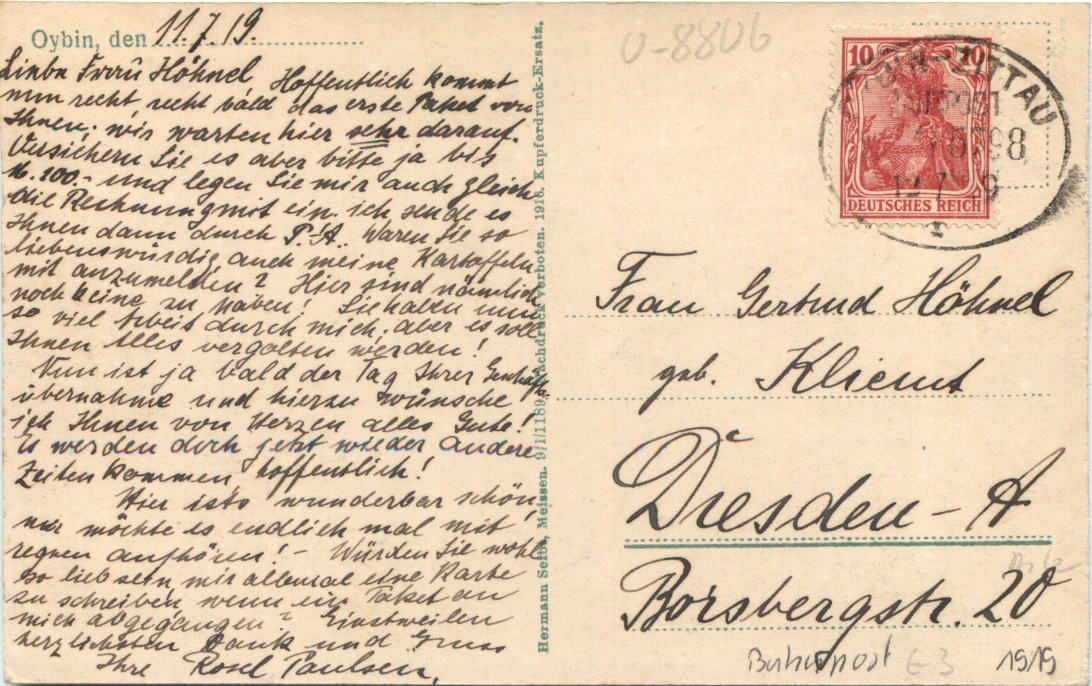 Oybin, den 11.7.19.
Liebe Frau Höhnel Hoffentlich kommt
nun recht recht bald das erste Paket von
Ihnen; wir warten hier sehr darauf.
Versichern Sie es aber bitte ja bis
M. 100.- und legen Sie mir auch gleich
die Rechnung mit ein. ich sende es
Ihnen dann durch P.-A. Waren Sie so
liebenswürdig auch meine Kartoffeln
mit anzumelden? Hier sind nämlich
noch keine zu haben! Sie haben nun
so viel Arbeit durch mich; aber es soll
Ihnen Alles vergolten werden!
Nun ist ja bald der Tag Ihrer Geschäfts-
übernahme und hierzu wünsche
ich Ihnen von Herzen alles Gute!
Es werden doch jetzt wieder andere
Zeiten kommen, hoffentlich!
Hier ists wunderbar schön,
nur möchte es endlich mal mit
regnen aufhören! - Würden Sie wohl
so lieb sein, mir allemal eine Karte
zu schreiben wenn ein Paket an
mich abgegangen? Einstweilen
herzlichsten Dank und Gruss
Ihre Rosel Paulsen.
Hermann Seibt, Meissen. 9/1/1189 Nachdruck verboten. 1918. Kupferdruck-Ersatz.
U-8806
10 10
DEUTSCHES REICH
ZITTAU
12 7 9
Frau Gertrud Höhnel
geb. Kliemt
Dresden-A
Borsbergstr. 20
Bahnpost
G3
1919